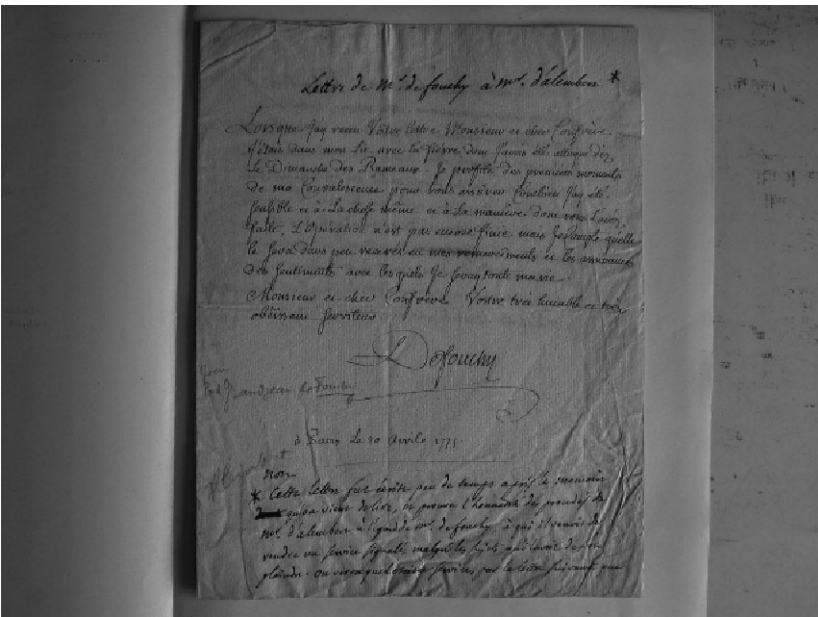 Lettre de Mr. de fouchy à mr. d'alembert *
Lorsque j'ay receu Vostre lettre Monsieur et cher Confrère
j'étais dans mon lit avec la fievre dont j'avois été attaqué dès
Le Dimanche des Rameaux. Je profite des premiers moments
de ma Convalescence pour vous assurer combien j'ay été
sensible et à la chose même et à la manière dont vous l'avez
faite. L'opération n'est pas encore finie mais qu'elle
le sera dans peu recevez en mes remerciements et les assurances
des sentiments avec lesquels je seray toute ma vie
Monsieur et cher Confrère Vostre très humble et très
obéissant serviteur
Defouchy
Grandjean de Fouchy
à Paris le 10 Avril 1775.
non
* Cette lettre fut écrite peu de temps après le
qu'on vient de lire, et prouve l'honnêteté des procédés de
mr. d'alembert à l'égard de mr. de fouchy, à qui il venoit de
rendre un service signalé, malgré les sujets qu'il avoit de s'en
plaindre. on verra par la lettre suivante que